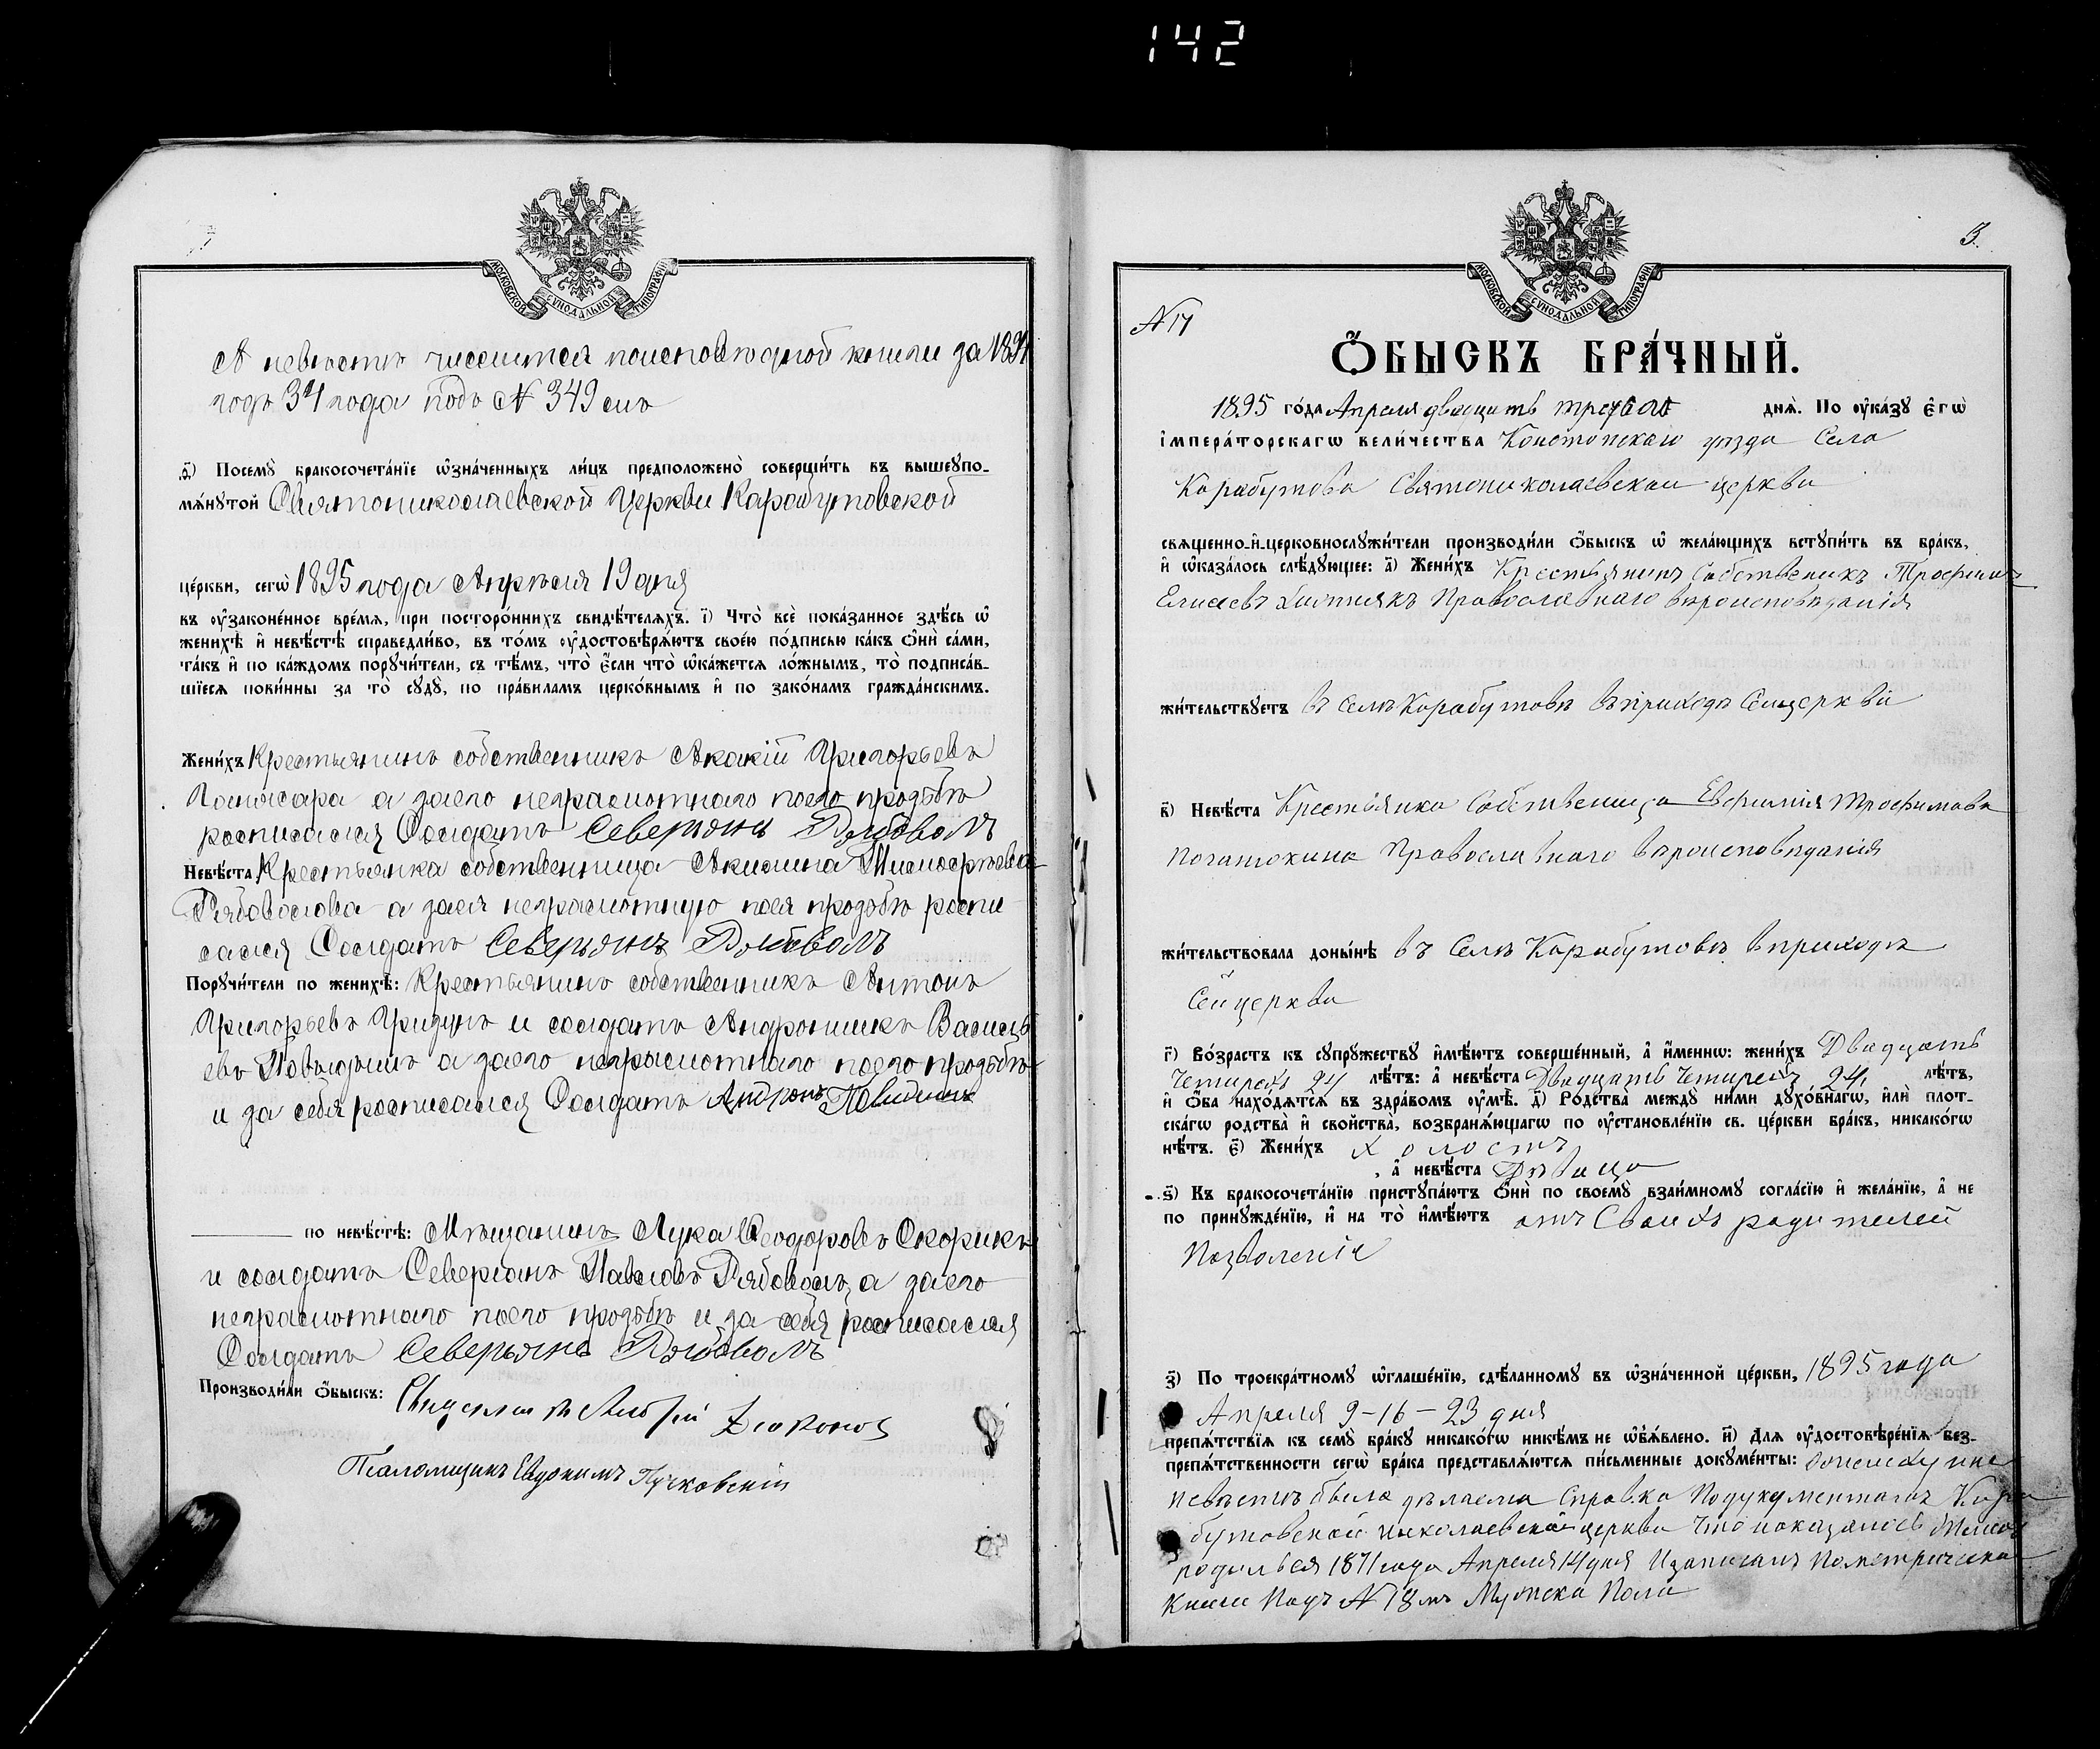 142
МОСКОВСКОЙ СѴНОДАЛЬНОЙ ТИПОГРАФІИ
А невеста числится поисповедной книги за 1894
годъ 34 года подъ № 349 мъ
ѳ҃) Посемꙋ̀ бракосочета́нїе ѡ҆зна́ченныхъ ли́цъ предположено̀ соверши́ть въ вышеꙋпо-
мѧ́нꙋтой Святониколаевской Церкви Карабутовской
це́ркви, сегѡ̀ 1895 года Апреля 19 дня
въ ᲂу҆зако́ненное вре́мѧ, при посторо́ннихъ свидѣ́телѧхъ. і҃) Что̀ всѐ пока́занное здѣ́сь ѡ҆
женихѣ̀ и҆ невѣ́стѣ справедли́во, въ то́мъ ᲂу҆достовѣрѧ́ютъ свое́ю по́дписью ка́къ ѻ҆нѝ са́ми,
та́къ и҆ по ка́ждомъ порꙋчи́тели, съ тѣ́мъ, что̀ є҆́сли что̀ ѡ҆ка́жетсѧ ло́жнымъ, то̀ подписа́в-
шїесѧ пови́нны за то̀ сꙋдꙋ̀, по пра́виламъ церко́внымъ и҆ по зако́намъ гражда́нскимъ.
Жени́хъ Крестьянинъ собственникъ Акакій Григорьевъ
а заего неграмотнаго поего прозьбе
росписался Солдатъ Северьянъ Рябовалъ
Невѣ́ста Крестьянка собственница Акилина
Рябовалова а заея неграмотную поея прозьбе роспи
сался Солдатъ Северьянъ Рябовалъ
Порꙋчи́тели по женихѣ̀: Крестьянинъ собственникъ Антонъ
Григорьевъ Гридунъ и солдатъ Андроникъ Василь
евъ а заего неграмотнаго поего прозьбе
и за себя росписался Солдатъ Андронъ
по невѣ́стѣ: Мещанинъ Лука Ѳеодоровъ Скорикъ
и солдатъ Северіанъ Павловъ Рябовалъ, а заего
неграмотнаго поего прозьбе и за себя росписался
Солдатъ Северьянъ Рябовалъ
Производи́ли ѻ҆́быскъ:
Псаломщикъ Евдокимъ Пучковскій
3.
МОСКОВСКОЙ СѴНОДАЛЬНОЙ ТИПОГРАФІИ
№ 17
Ѻ҆́БЫСКЪ БРА́ЧНЫЙ.
1895 го́да Апреля двадцать третьяго днѧ̀. По ᲂу҆ка́зꙋ є҆гѡ̀
і҆мпера́торскагѡ вели́чества Конотопскаго уезда Села
Карабутова Святониколаевской церкви
свѧщенно-и҆-церковнослꙋжи́тели производи́ли ѻ҆́быскъ ѡ҆ жела́ющихъ встꙋпи́ть въ бра́къ,
и҆ ѡ҆каза́лось слѣ́дꙋющее: а҃) Жени́хъ Крестьянинъ Собственикъ Трофимъ
Елисеевъ Православнаго вероисповеданія
жи́тельствꙋетъ въ селе Карабутове въ приходе Сей церкви
в҃) Невѣ́ста Крестьянка Собственица Евфимія Трофимова
Потапохина Православнаго вероисповеданія
жи́тельствовала доны́нѣ въ Селе Карабутове вприходе
Сей церкви
г҃) Во́зрастъ къ сꙋпрꙋ́жествꙋ и҆мѣ́ютъ соверше́нный, а҆ и҆́меннѡ: жени́хъ Двадцать
Четырехъ 24 лѣ́тъ: а҆ невѣ́ста Двадцать Четырехъ 24 лѣ́тъ,
и҆ ѻ҆́ба нахо́дѧтсѧ въ здра́вомъ ᲂу҆мѣ̀. д҃) Ро́дства междꙋ ни́ми дꙋхо́внагѡ, и҆лѝ плот-
ска́гѡ родства̀ и҆ сво́йства, возбранѧ́ющагѡ по ᲂу҆становле́нїю св. це́ркви бра́къ, никако́гѡ
нѣ́тъ. є҃) Жени́хъ Холостъ
, а҆ невѣ́ста Девица
ѕ҃) Къ бракосочета́нїю пристꙋпа́ютъ ѻ҆нѝ по своемꙋ̀ взаи́мномꙋ согла́сїю и҆ жела́нїю, а҆ не
по принꙋжде́нїю, и҆ на то̀ и҆мѣ́ютъ отъ Своихъ родителей
Позволеніе
з҃) По троекра́тномꙋ ѡ҆глаше́нїю, сдѣ́ланномꙋ въ ѡ҆зна́ченной це́ркви, 1895 года
Апреля 9-16-23 дня
препѧ́тствїѧ къ семꙋ̀ бра́кꙋ никако́гѡ никѣ́мъ не ѡ҆б̾ѧ́влено. и҃) Для ᲂу҆достовѣре́нїѧ без-
препѧ́тственности сегѡ̀ бра́ка представлѧ́ютсѧ пи́сьменные докꙋме́нты: Оженихе и не
невесте была делаема Справка Подукументамъ Кара
бутовской николаевской церкви Что показалось
родился 1871 года Апреля 14 дня Изаписанъ Пометрической
Книги Подъ № 18 мъ Мужска Пола